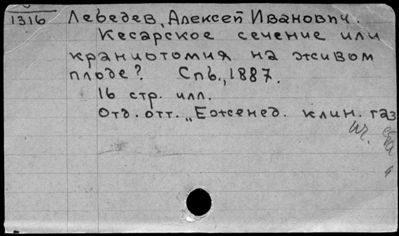 1316 Лебедев, Алексей Иванович.
Кесарское сечение или
краниотомия на живом
плоде? Спб., 1887.
16 стр. илл.
Отд. отт. „Еженед. клин. газ